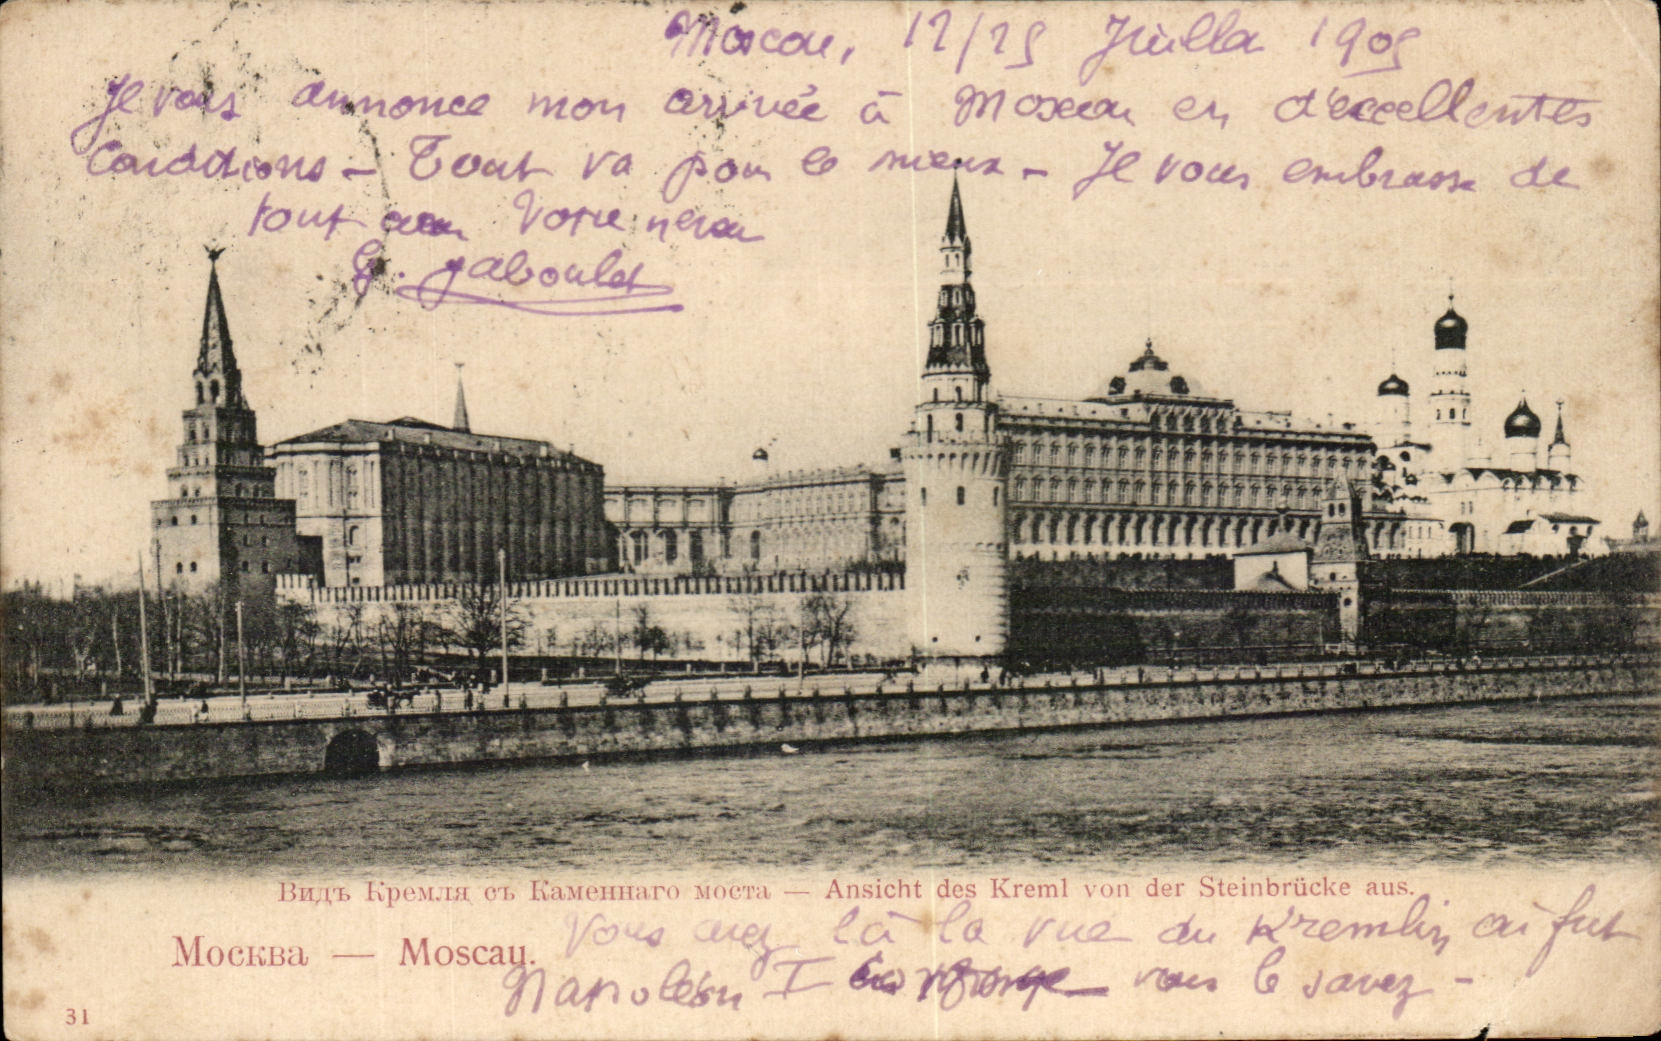 Moscou, 12/25 Juillet 1905
Je vous annonce mon arrivée à Moscou en d'excellentes
Conditions – Tout va pour le mieux – Je vous embrasse de
tout cœur Votre neveu
G. Jaboulet
Видъ Кремля съ Каменнаго моста — Ansicht des Kreml von der Steinbrücke aus.
Vous avez là la vue du Kremlin où fut
Москва — Moscau.
Napoléon I vous le savez –
31